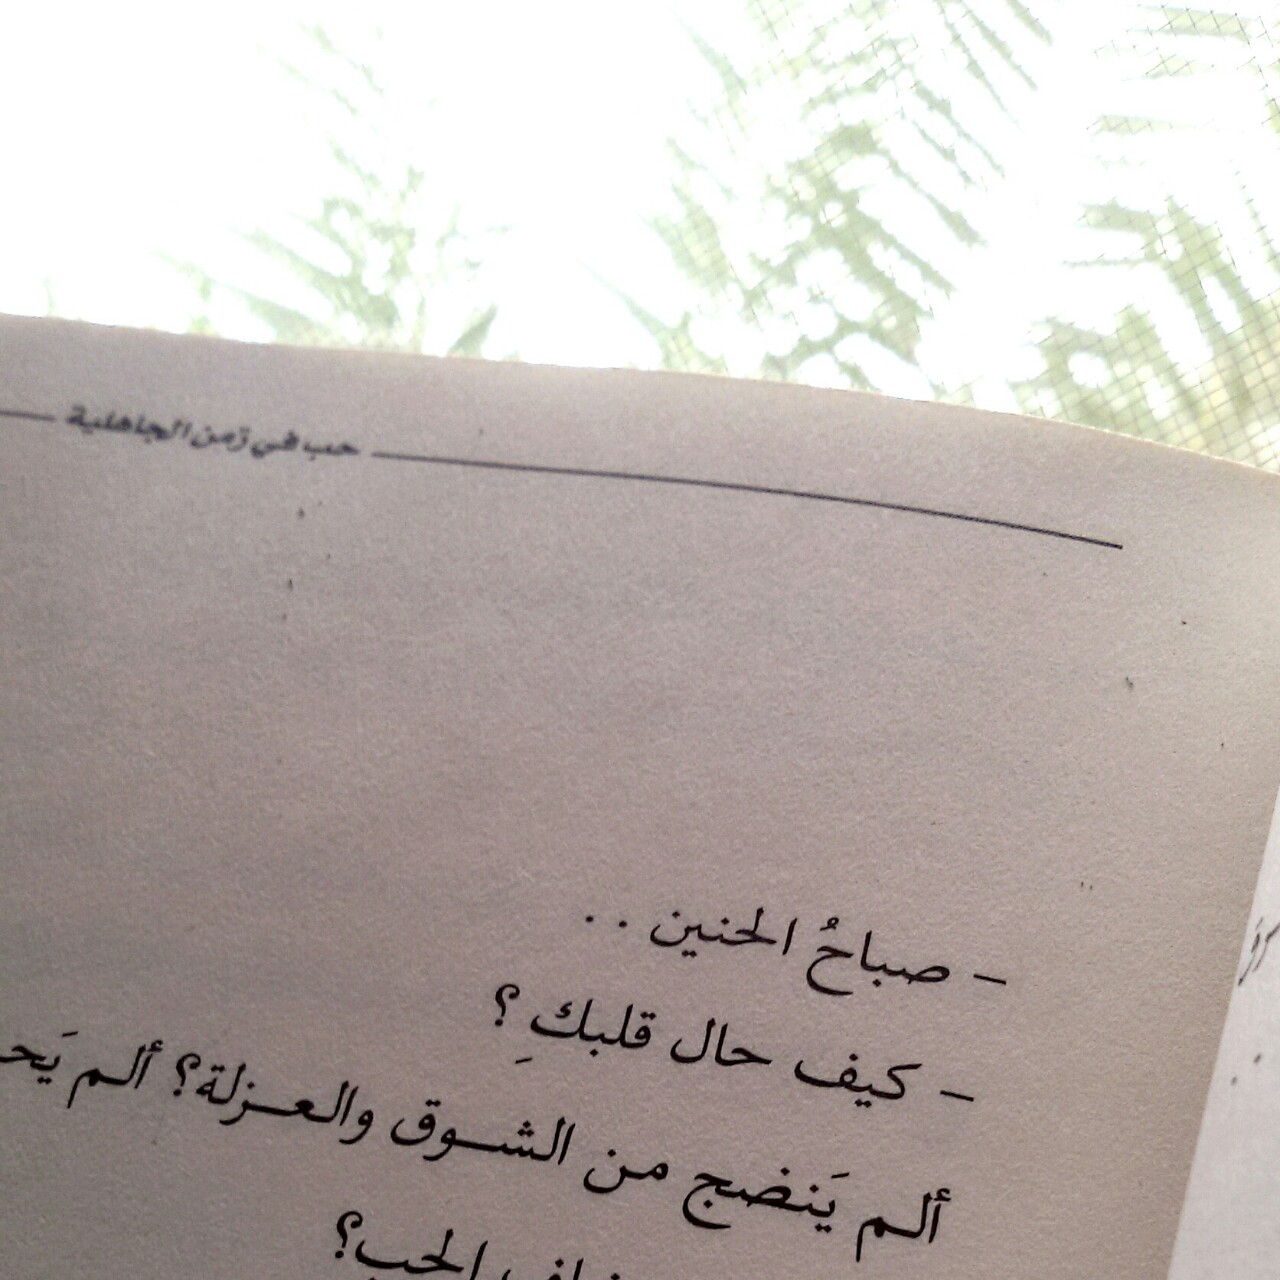 حب في زمن الجاهلية
– صباحُ الحنين . .
– كيف حال قلبكِ ؟
ألم يَنضج من الشوق والعزلة؟ ألم
الحب؟